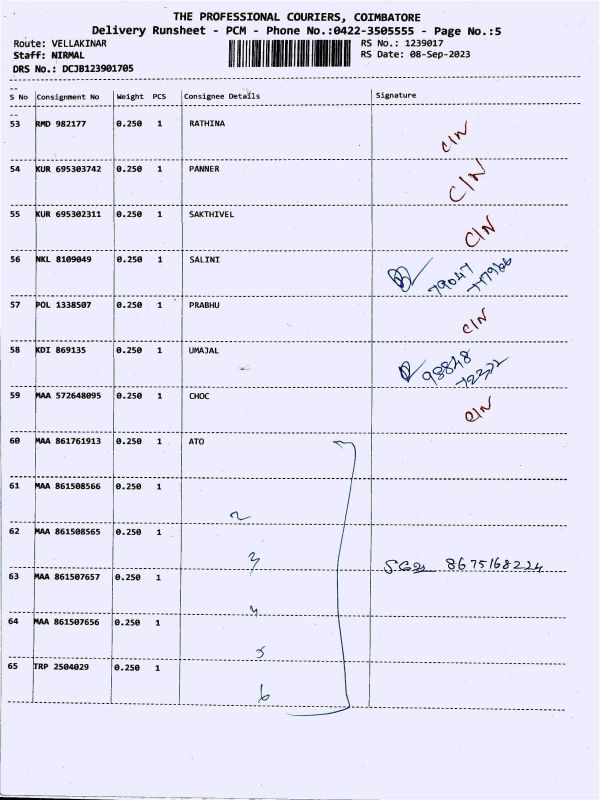 THE PROFESSIONAL COURIERS, COIMBATORE
Delivery Runsheet - PCM - Phone No.:0422-3505555 - Page No.:5
Route: VELLAKINAR RS No.: 1239017
Staff: NIRMAL RS Date: 08-Sep-2023
DRS No.: DCJB123901705
S No Consignment No Weight PCS Consignee Details Signature
53 RMD 982177 0.250 1 RATHINA C/N
54 KUR 695303742 0.250 1 PANNER C/N
55 KUR 695302311 0.250 1 SAKTHIVEL C/N
56 NKL 8109049 0.250 1 SALINI 79047
57 POL 1338507 0.250 1 PRABHU C/N
58 KDI 869135 0.250 1 UMAJAL 98848
59 MAA 572648095 0.250 1 CHOC C/N
60 MAA 861761913 0.250 1 ATO
61 MAA 861508566 0.250 1
2
62 MAA 861508565 0.250 1
3 8675168224
63 MAA 861507657 0.250 1
4
64 MAA 861507656 0.250 1
5
65 TRP 2504029 0.250 1
6